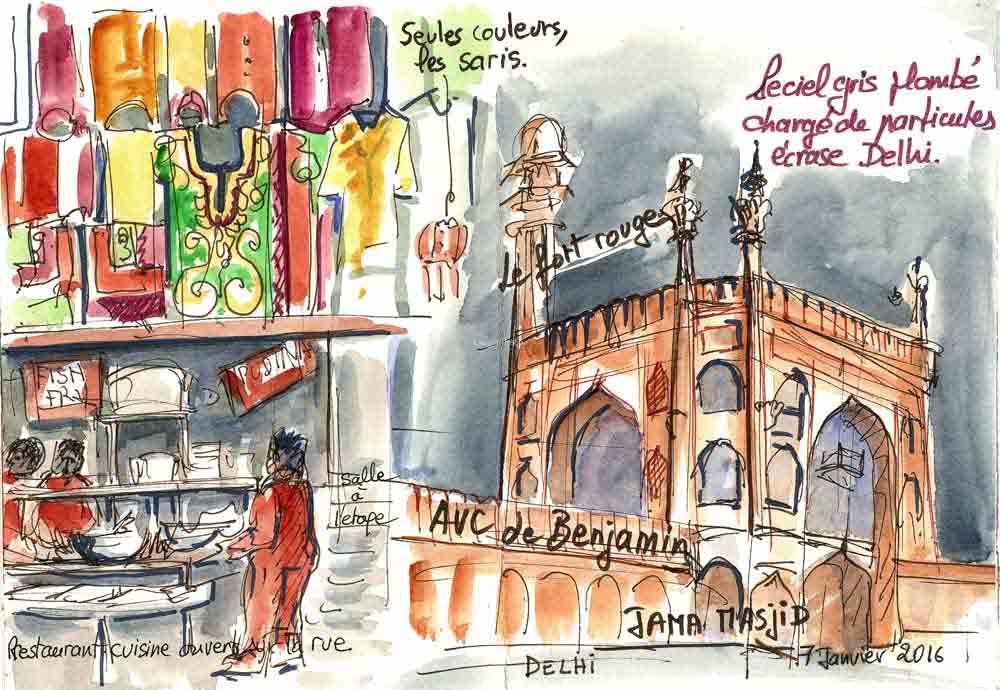 Seules couleurs,
les saris.
le ciel gris plombé
chargé de particules
écrase Delhi.
Le fort rouge
FISH
FRY
salle
à
l'étage
AVC de Benjamin
JAMA MASJID
Restaurant cuisine ouverte sur la rue.
DELHI
7 Janvier 2016